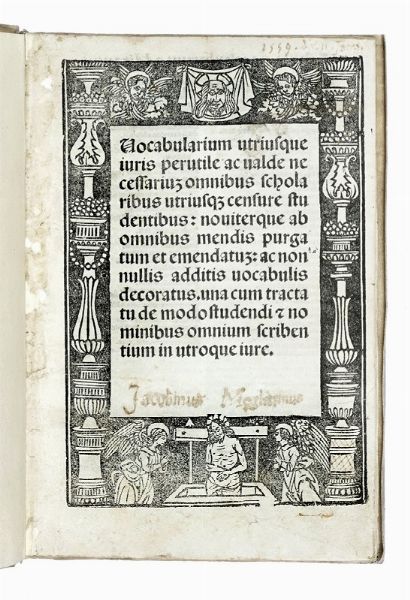 1559.
Vocabularium utriusque
iuris perutile ac ualde ne
cessariuʒ omnibus schola
ribus utriusqʒ censure stu
dentibus: nouiterque ab
omnibus mendis purga
tum et emendatuʒ: ac non
nullis additis uocabulis
decoratus. una cum tracta
tu de modo studendi ⁊ no
minibus omnium scriben
tium in utroque iure.
Jacobinus